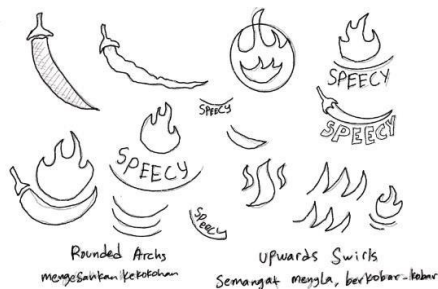 SPEECY
SPEECY
SPEECY
SPEECY
SPEECY
Rounded Archs
mengesankan kekokohan
Upwards Swirls
Semangat menyla, berkobar-kobar